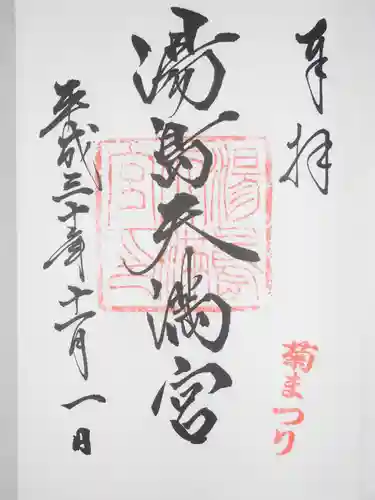 奉拝
菊まつり
湯島天満宮
平成三十年十一月一日